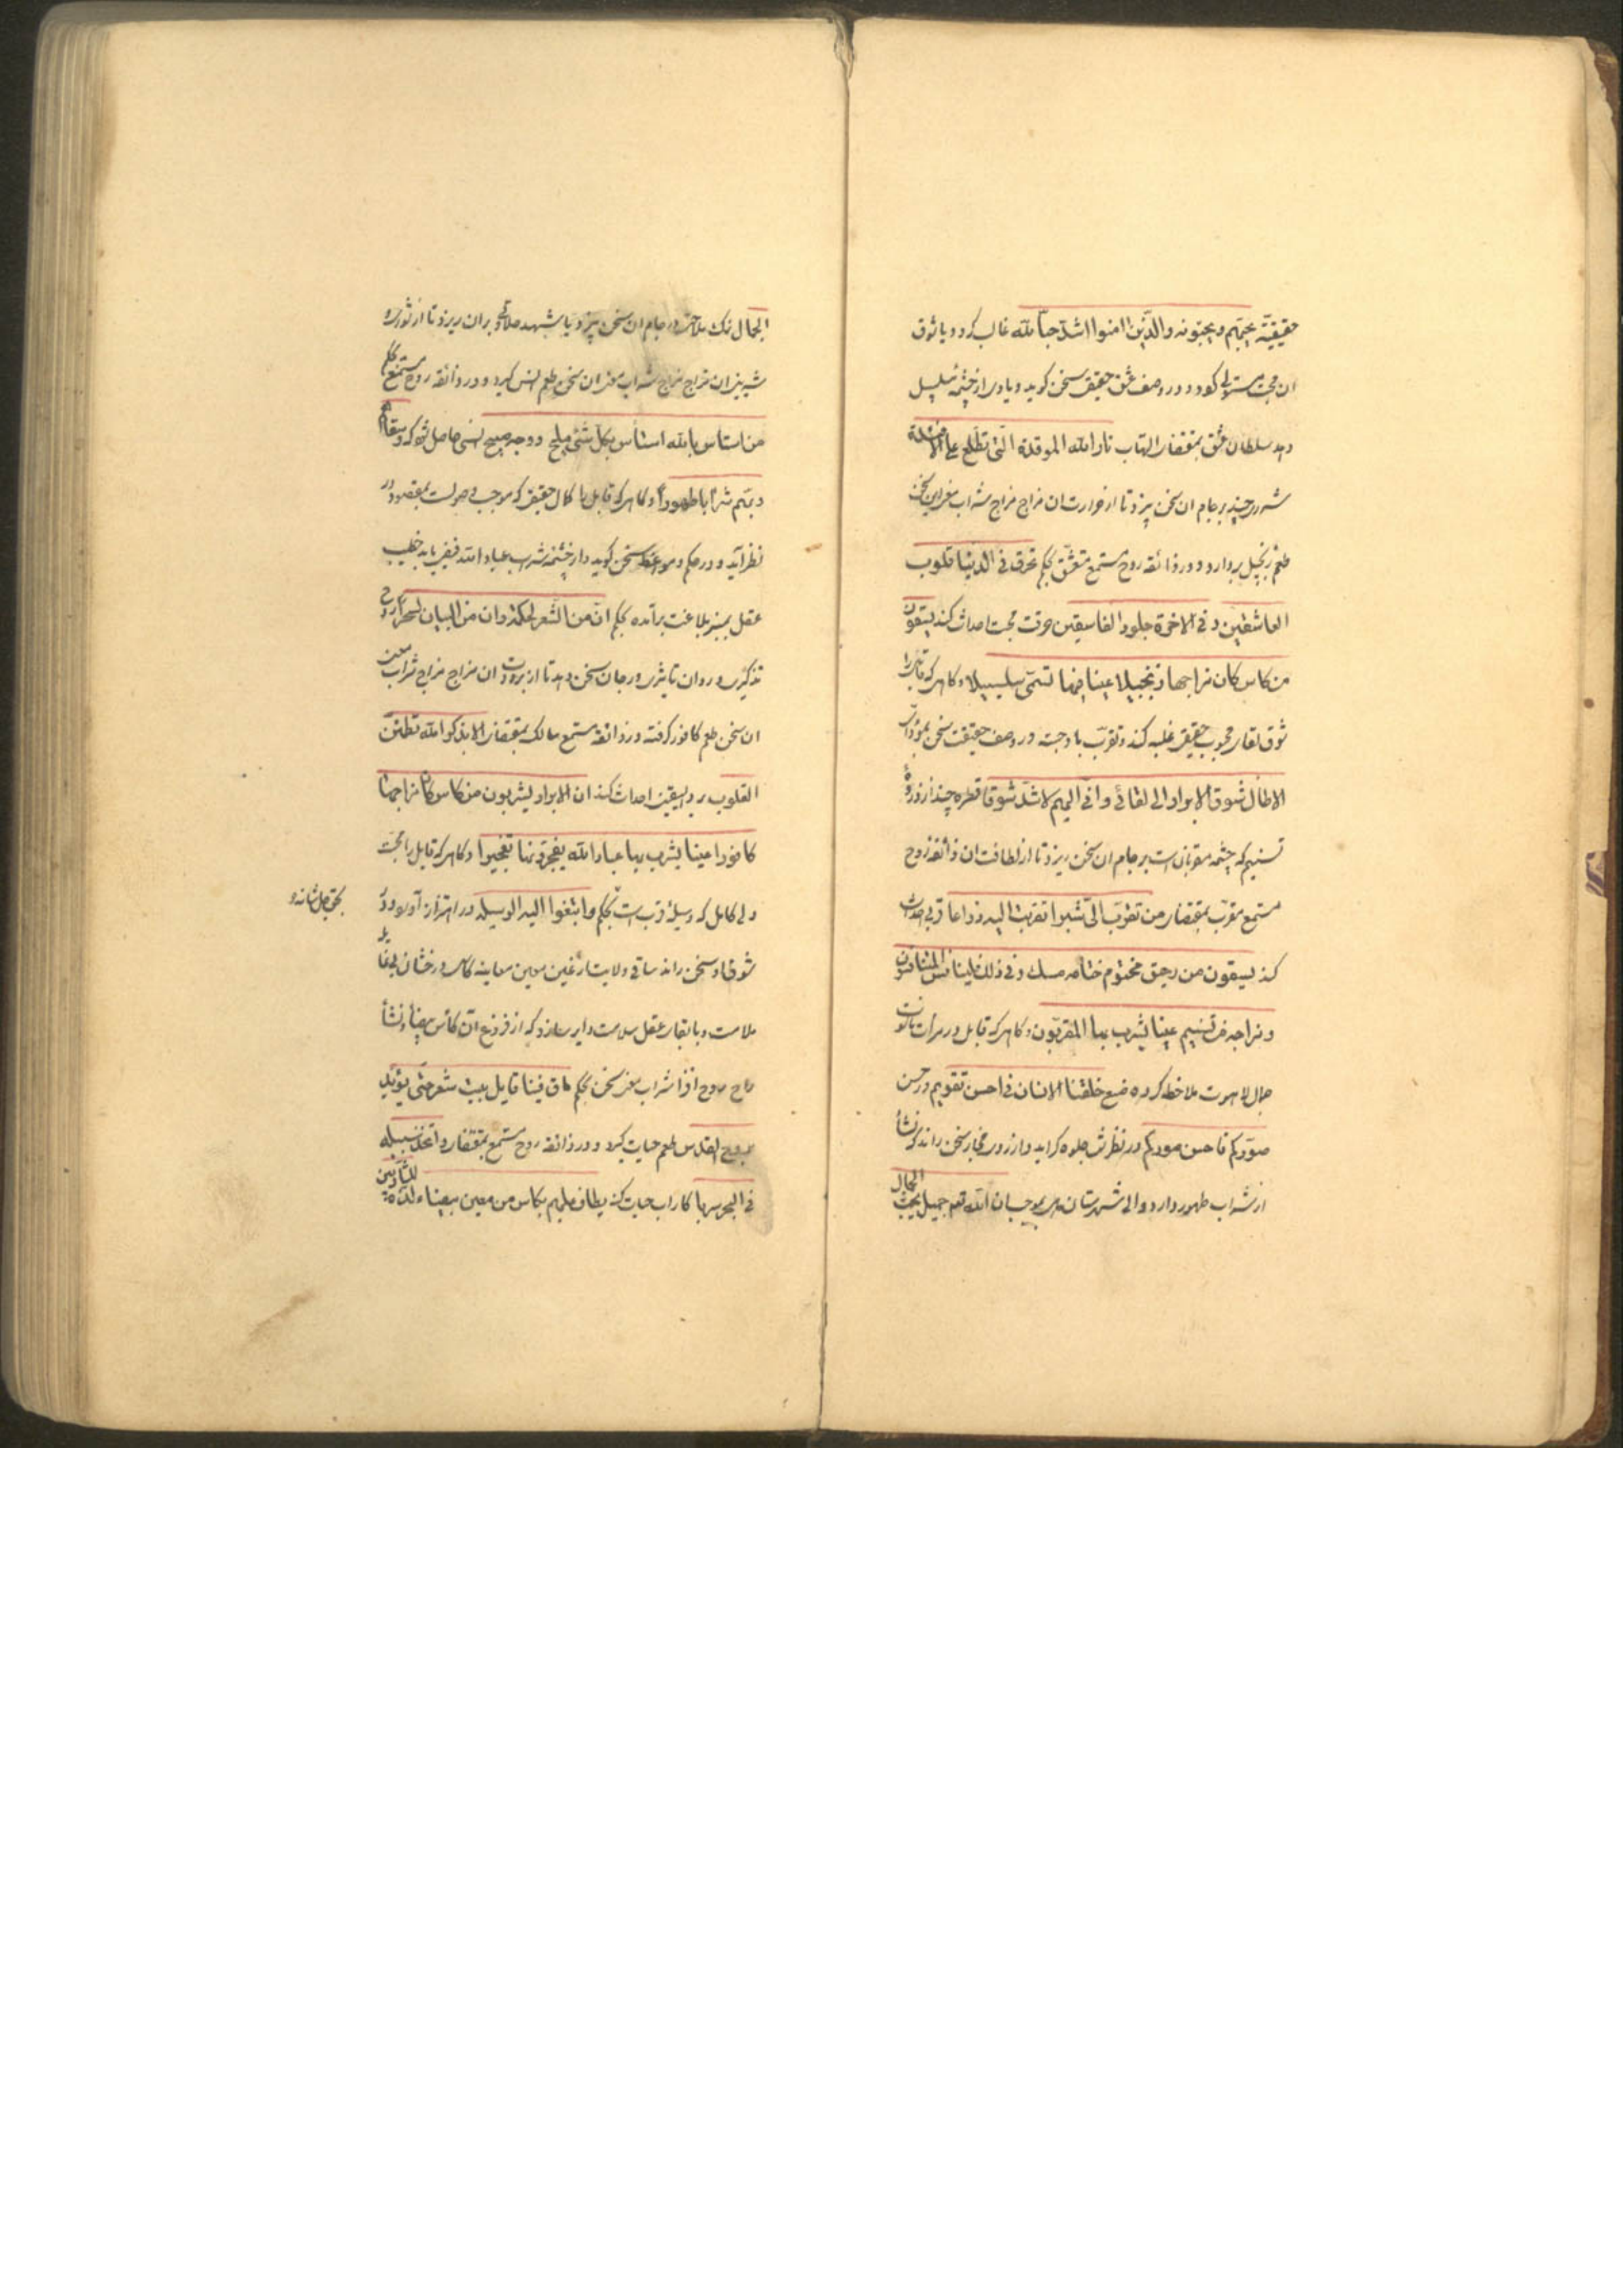 حقیقیّه یحبّهم و یحبّونه والذین امنوا اشدّ حبّاً لله غالب کردد و یا ذوق
ان محبت مستولی کردد و در وصف عشق حقیقی سخن کوید و یا وی از چشمهٔ سلسبیل
دهد سلطان عشق بمقتضای التهاب نار الله الموقدة الّتی تطّلع علی الافئدة
شرری چند بر جام ان سخن ریزد تا از حرارت ان مزاج مزاج شراب معنی این سخن
طعم زنجبیل بردارد و در ذائقه روح مستمع متعشّق بحکم تحرق فی الدنیا قلوب
العاشقین و فی الاخرة جلود الفاسقین حرقت محبت احداث کند یسقون
من کاس کان مزاجها زنجبیلا عینا فیها تسمّی سلسبیلا و کاهی که قایل را
شوق لقای محبوب حقیقی غلبه کند و تقرّب با وجسته در وصف حقیقت سخن بمؤدّای
الاطال شوق الابرار الی لقائی و انی الیهم لاشدّ شوقا قطره چند از ذروهٔ
تسنیم که چشمه مقربان است بر جام ان سخن ریزد تا از لطافت ان ذائقه روح
مستمع مقرّب بمقتضای من تقرّب الیّ شبرا تقربت الیه ذراعا قربی احداث
کند یسقون من رحیق مختوم ختامه مسک و فی ذلک فلیتنافس المتنافسون
و مزاجه من تسنیم عینا یشرب بها المقرّبون و کاهی که قابل در مرات ناسوت
جمال لاهوت ملاحظه کرده صنع خلقنا الانسان فی احسن تقویم و حسن
صوّرکم فاحسن صورکم در نظرش جلوه کر اید و از روی مجاز سخن راند که نشأ
از شراب طهور دارد والی شهرستان بموجب ان الله تعم جمیل یحبّ الجمال
الجمال نمک ملاحت در جام ان سخن ریزد یا شهد حلاوت بر ان ریزد تا از شورئ
شیرینی ان مزاج مزاج شراب معنی ان سخن طعم انس کیرد و در ذائقه روح مستمع بحکم
من استأنس بالله استأنس بکل شیء ملیح و وجه صبیح انسی حاصل شود که و سقاهم
ربّهم شراباً طهوراً و کاهی که قابل را کمال حقیقی که موجب وصولست بمقصود در
نظر آید و در حکم و مواعظ سخن کوید و از چشمه یشرب بها عباد الله فیض یابد خطیب
عقل بمنبر بلاغت برآمده بحکم انّ من الشّعر لحکمة و ان من البیان لسحرا روح
تذکیری در وان تاثیری در جان سخن دهد تا از برودت ان مزاج مزاج شراب معنی
ان سخن طعم کافور کرفته در ذائقه مستمع سالک بمقتضای الا بذکر الله تطمئنّ
القلوب برد الیقین احداث کند ان الابرار یشربون من کاس کان مزاجها
کافورا عینا یشرب بها عباد الله یفجّرونها تفجیرا و کاهی که قابل را محبت
ولی کامل که وسیلهٔ قرب است بحکم وابتغوا الیه الوسیله در اهتزاز آورد و از
بحق جل شانه و
شوق او سخن راند ساقی ولایت از عین معین معاینه کاس درخشان بی غایله
ملامت و با بقای عقل سلامت دایر سازد که از فروغ آن کأس بیضا و نشأ
راح روح افزا شراب معنی سخن بحکم ما ق فینا قایل بیت شعر حتّی یؤیّد
بروح القدس طعم حیات کیرد و در ذائقه روح مستمع بمقتضای واتّخذ سبیله
فی البحر سربا کار اب حیات کند یطاف علیهم بکاس من معین بیضاء لذّة للشّاربین